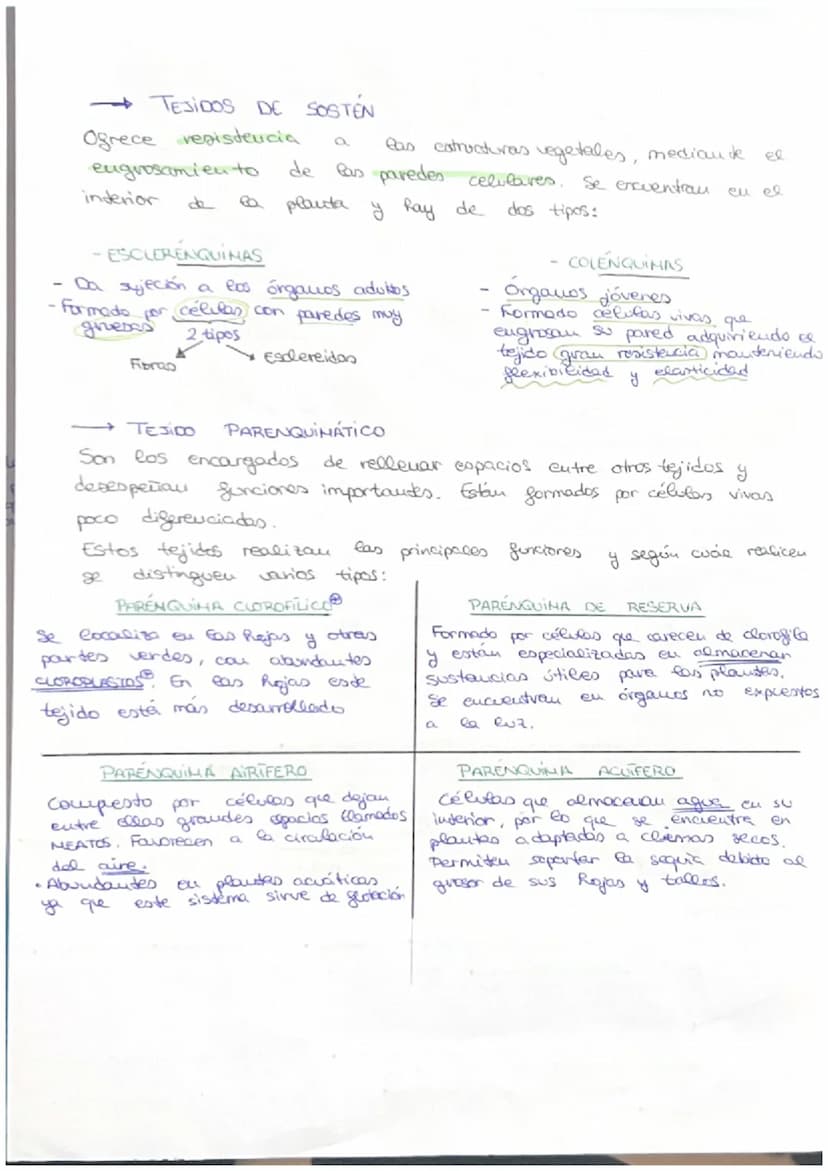 → TEJIDOS DE SOSTÉN
Ofrece resistencia a las estructuras vegetales, mediante el
engrosamiento de las paredes celulares. Se encuentran en el
interior de la planta y hay de dos tipos:
- ESCLERÉNQUIMAS
- Da sujeción a los órganos adultos
- Formado por células con paredes muy
gruesas
2 tipos
Fibras
Esclereidas
- COLÉNQUIMAS
- Órganos jóvenes
- Formado células vivas que
engrosan su pared adquiriendo el
tejido gran resistencia manteniendo
flexibilidad y elasticidad
→ TEJIDO PARENQUIMÁTICO
Son los encargados de rellenar espacios entre otros tejidos y
desespeñan funciones importantes. Están formados por células vivas
poco diferenciadas.
Estos tejidos realizan las principales funciones y según cuál realicen
se distinguen varios tipos:
PARÉNQUIMA CLOROFÍLICO
Se localiza en las hojas y otras
partes verdes, con abundantes
CLOROPLASTOS. En las hojas este
tejido está más desarrollado
PARÉNQUIMA DE RESERVA
Formado por células que carecen de clorofila
y están especializadas en almacenar
sustancias útiles para las plantas.
Se encuentran en órganos no expuestos
a la luz.
PARÉNQUIMA AIRÍFERO
Compesto por células que dejan
entre ellas grandes espacios llamados
MEATOS. Favorecen a la circulación
del aire.
• Abundantes en plantas acuáticas
ya que este sistema sirve de flotación
PARÉNQUIMA ACUÍFERO
Células que almacenan agua en su
interior, por lo que se encuentra en
plantas adaptadas a climas secos.
Permiten soportar la sequía debido al
grosor de sus hojas y tallos.